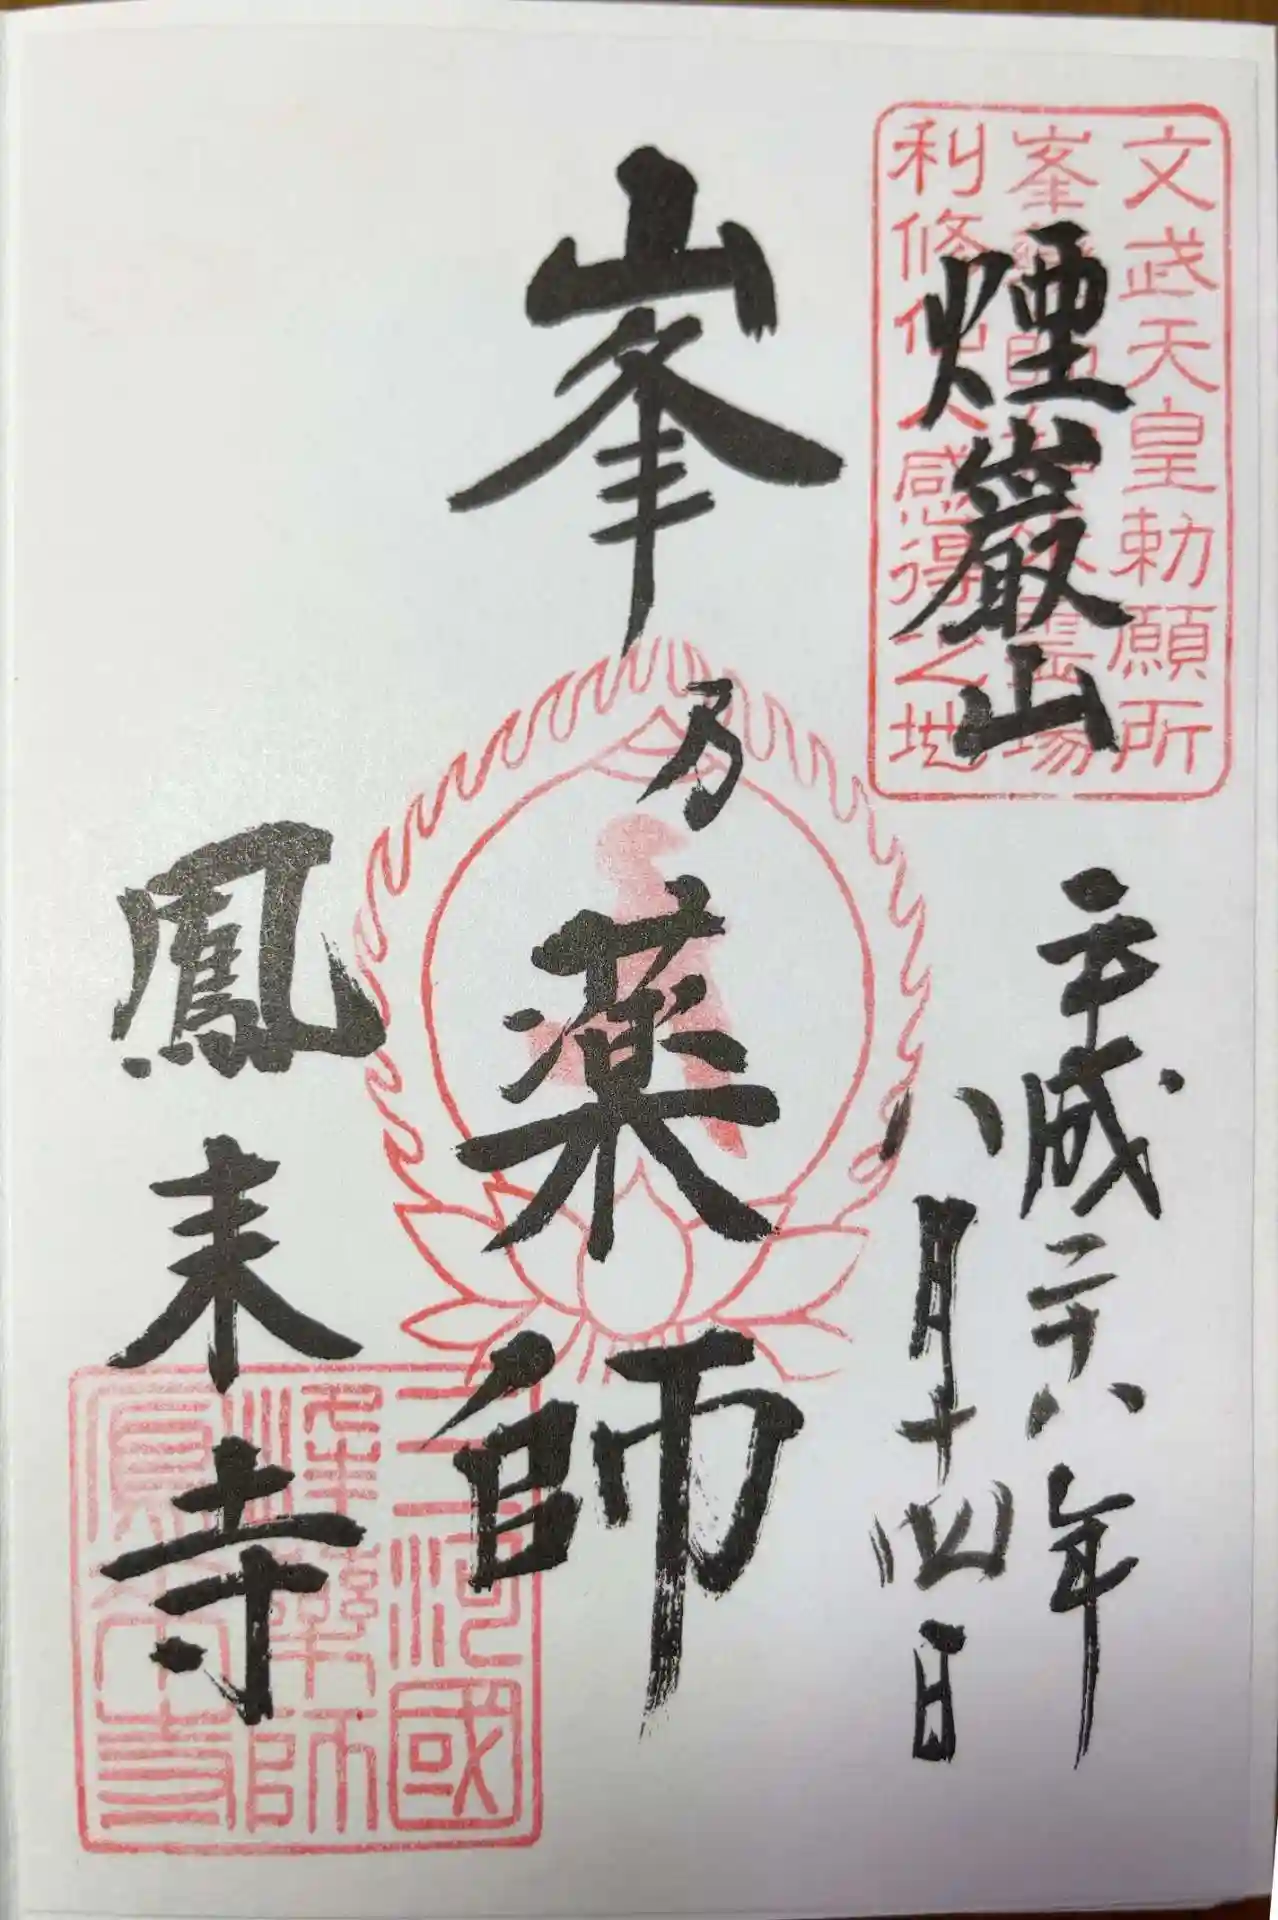 文武天皇勅願所
利修仙人感得之地
煙巖山
平成二十八年
八月十四日
峯乃薬師
鳳来寺
三河國
峰薬師
鳳来寺